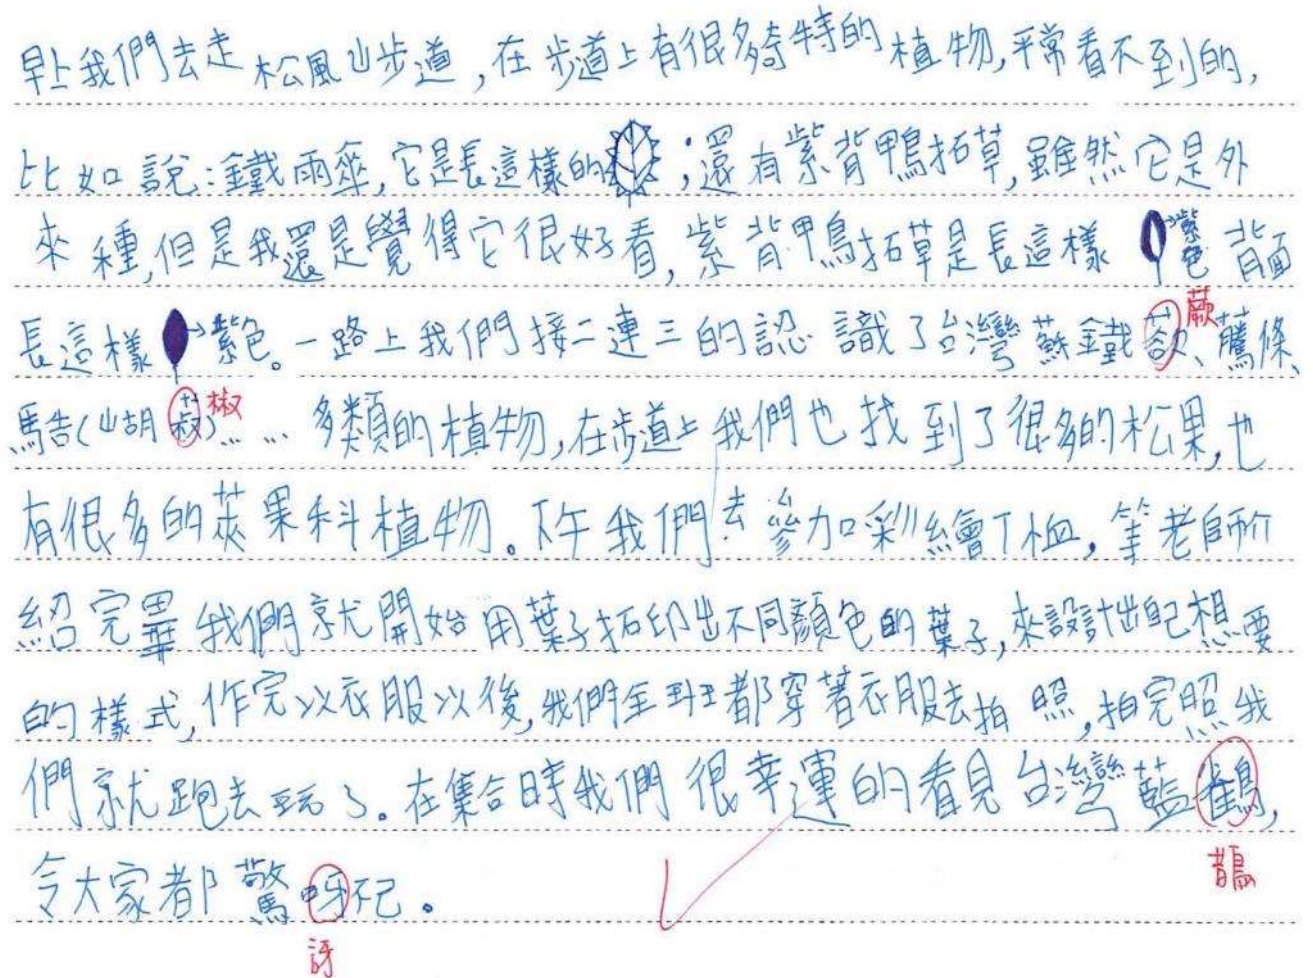 早上我們去走松風山步道,在步道上有很多奇特的植物,平常看不到的,
比如說:鐵雨傘,它是長這樣的;還有紫背鴨拓草,雖然它是外
來種,但是我還是覺得它很好看,紫背鴨拓草是長這樣→紫色背面
長這樣→紫色。一路上我們接二連三的認識了台灣蘇鐵、騰條、
蕨
馬告(山胡菽)……多類的植物,在步道上我們也找到了很多的松果,也
椒
有很多的莢果科植物。下午我們去參加彩繪T恤,等老師介
紹完畢我們就開始用葉子拓印出不同顏色的葉子,來設計出自己想要
的樣式,作完以衣服以後,我們全班都穿著衣服去拍照,拍完照我
們就跑去玩了。在集合時我們很幸運的看見台灣藍鶴,
鵲
令大家都驚呀不已。
訝